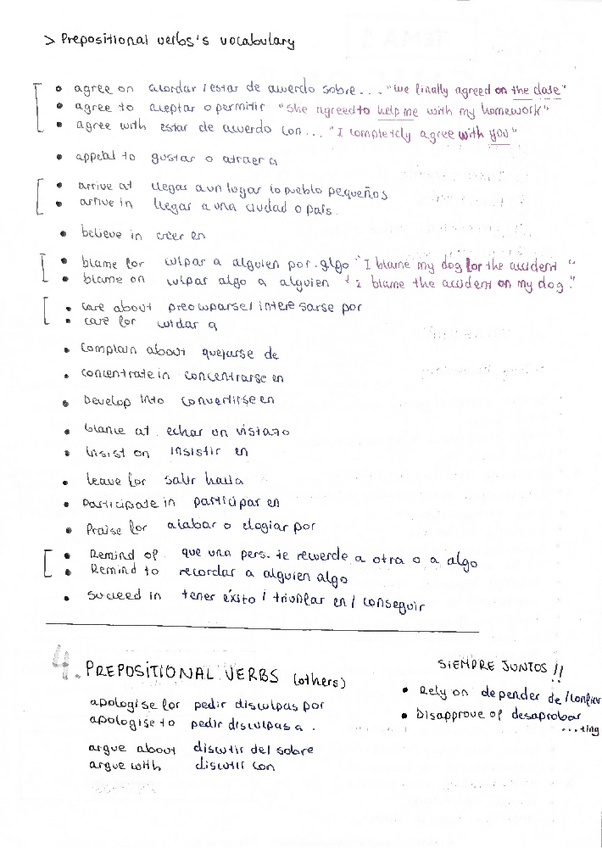 > Prepositional verbs's vocabulary
• agree on acordar / estar de acuerdo sobre... "We finally agreed on the date"
• agree to aceptar o permitir "She agreed to help me with my homework"
• agree with estar de acuerdo con... "I completely agree with you"
• appeal to gustar o atraer a
• arrive at llegar a un lugar o pueblo pequeños
• arrive in llegar a una ciudad o país.
• believe in creer en
• blame for culpar a alguien por algo "I blame my dog for the accident"
• blame on culpar algo a alguien "I blame the accident on my dog."
• care about preocuparse / interesarse por
• care for cuidar a
• complain about quejarse de
• concentrate in concentrarse en
• Develop into convertirse en
• glance at echar un vistazo
• insist on insistir en
• leave for salir hacia
• Participate in participar en
• Praise for alabar o elogiar por
• Remind of que una pers. te recuerde a otra o a algo
• Remind to recordar a alguien algo
• Succeed in tener éxito / triunfar en / conseguir
4. PREPOSITIONAL VERBS (others)
apologise for pedir disculpas por
apologise to pedir disculpas a.
argue about discutir del sobre
argue with discutir con
SIEMPRE JUNTOS !!
• Rely on depender de / confiar
• Disapprove of desaprobar
...ting